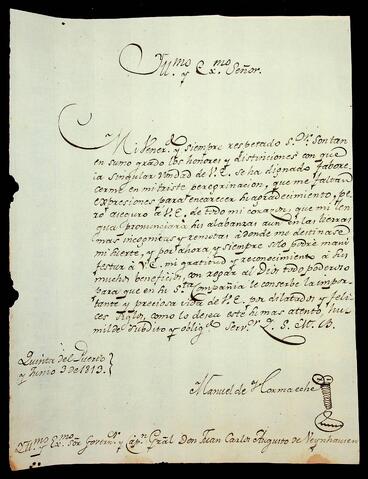 Yll.mo y Ex.mo Señor.
Mi Vener.e y siempre respetado S.or Son tan
en sumo grado los honores y distinciones con que
la singular vondad de V.E. se ha dignado fabore-
cerme en mi triste peregrinacion, que me faltan
expresiones para encarecer mi agradecimiento, pe-
ro aseguro a V.E. de todo mi corazon, que mi len-
gua pronunciará sus alabanzas aun en las tierras
mas incognitas y remotas á donde me destinase
mi suerte, y por ahora y siempre solo podré mani-
festar á V.E. mi gratitud y reconocimiento á sus
muchos beneficios, con rogar al Dios todo poderoso
para que en su S.ta Compañia le conserbe la impor-
tante y preciosa vida de V.E. por dilatados y feli-
ces siglos, como lo desea este su mas atento, hu-
milde subdito y oblig.o Serv.or Q. S. M. B.
Quinta del Puerto
y Junio 3 de 1813.
Manuel de Hormaeche
Yll.mo y Ex.mo Sor Govern.or y Cap.n Grãl Don Juan Carlos Augusto de Oeynhausen